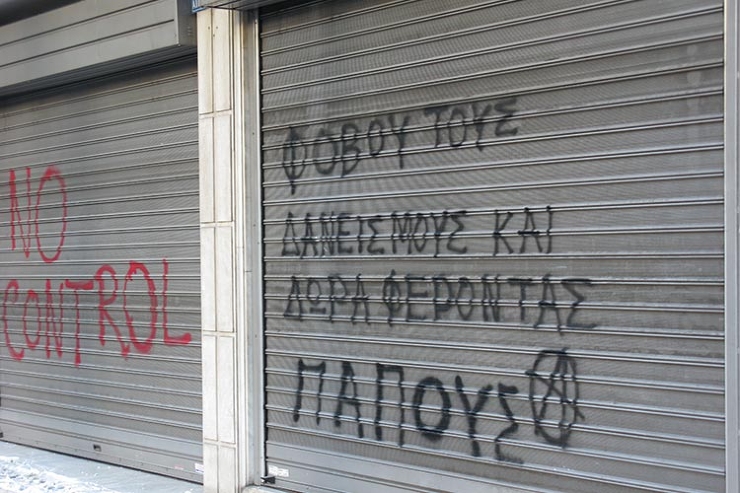 NO
CONTROL
ΦΟΒΟΥ ΤΟΥΣ
ΔΑΝΕΙΣΜΟΥΣ ΚΑΙ
ΔΩΡΑ ΦΕΡΟΝΤΑΣ
ΠΑΠΟΥΣ